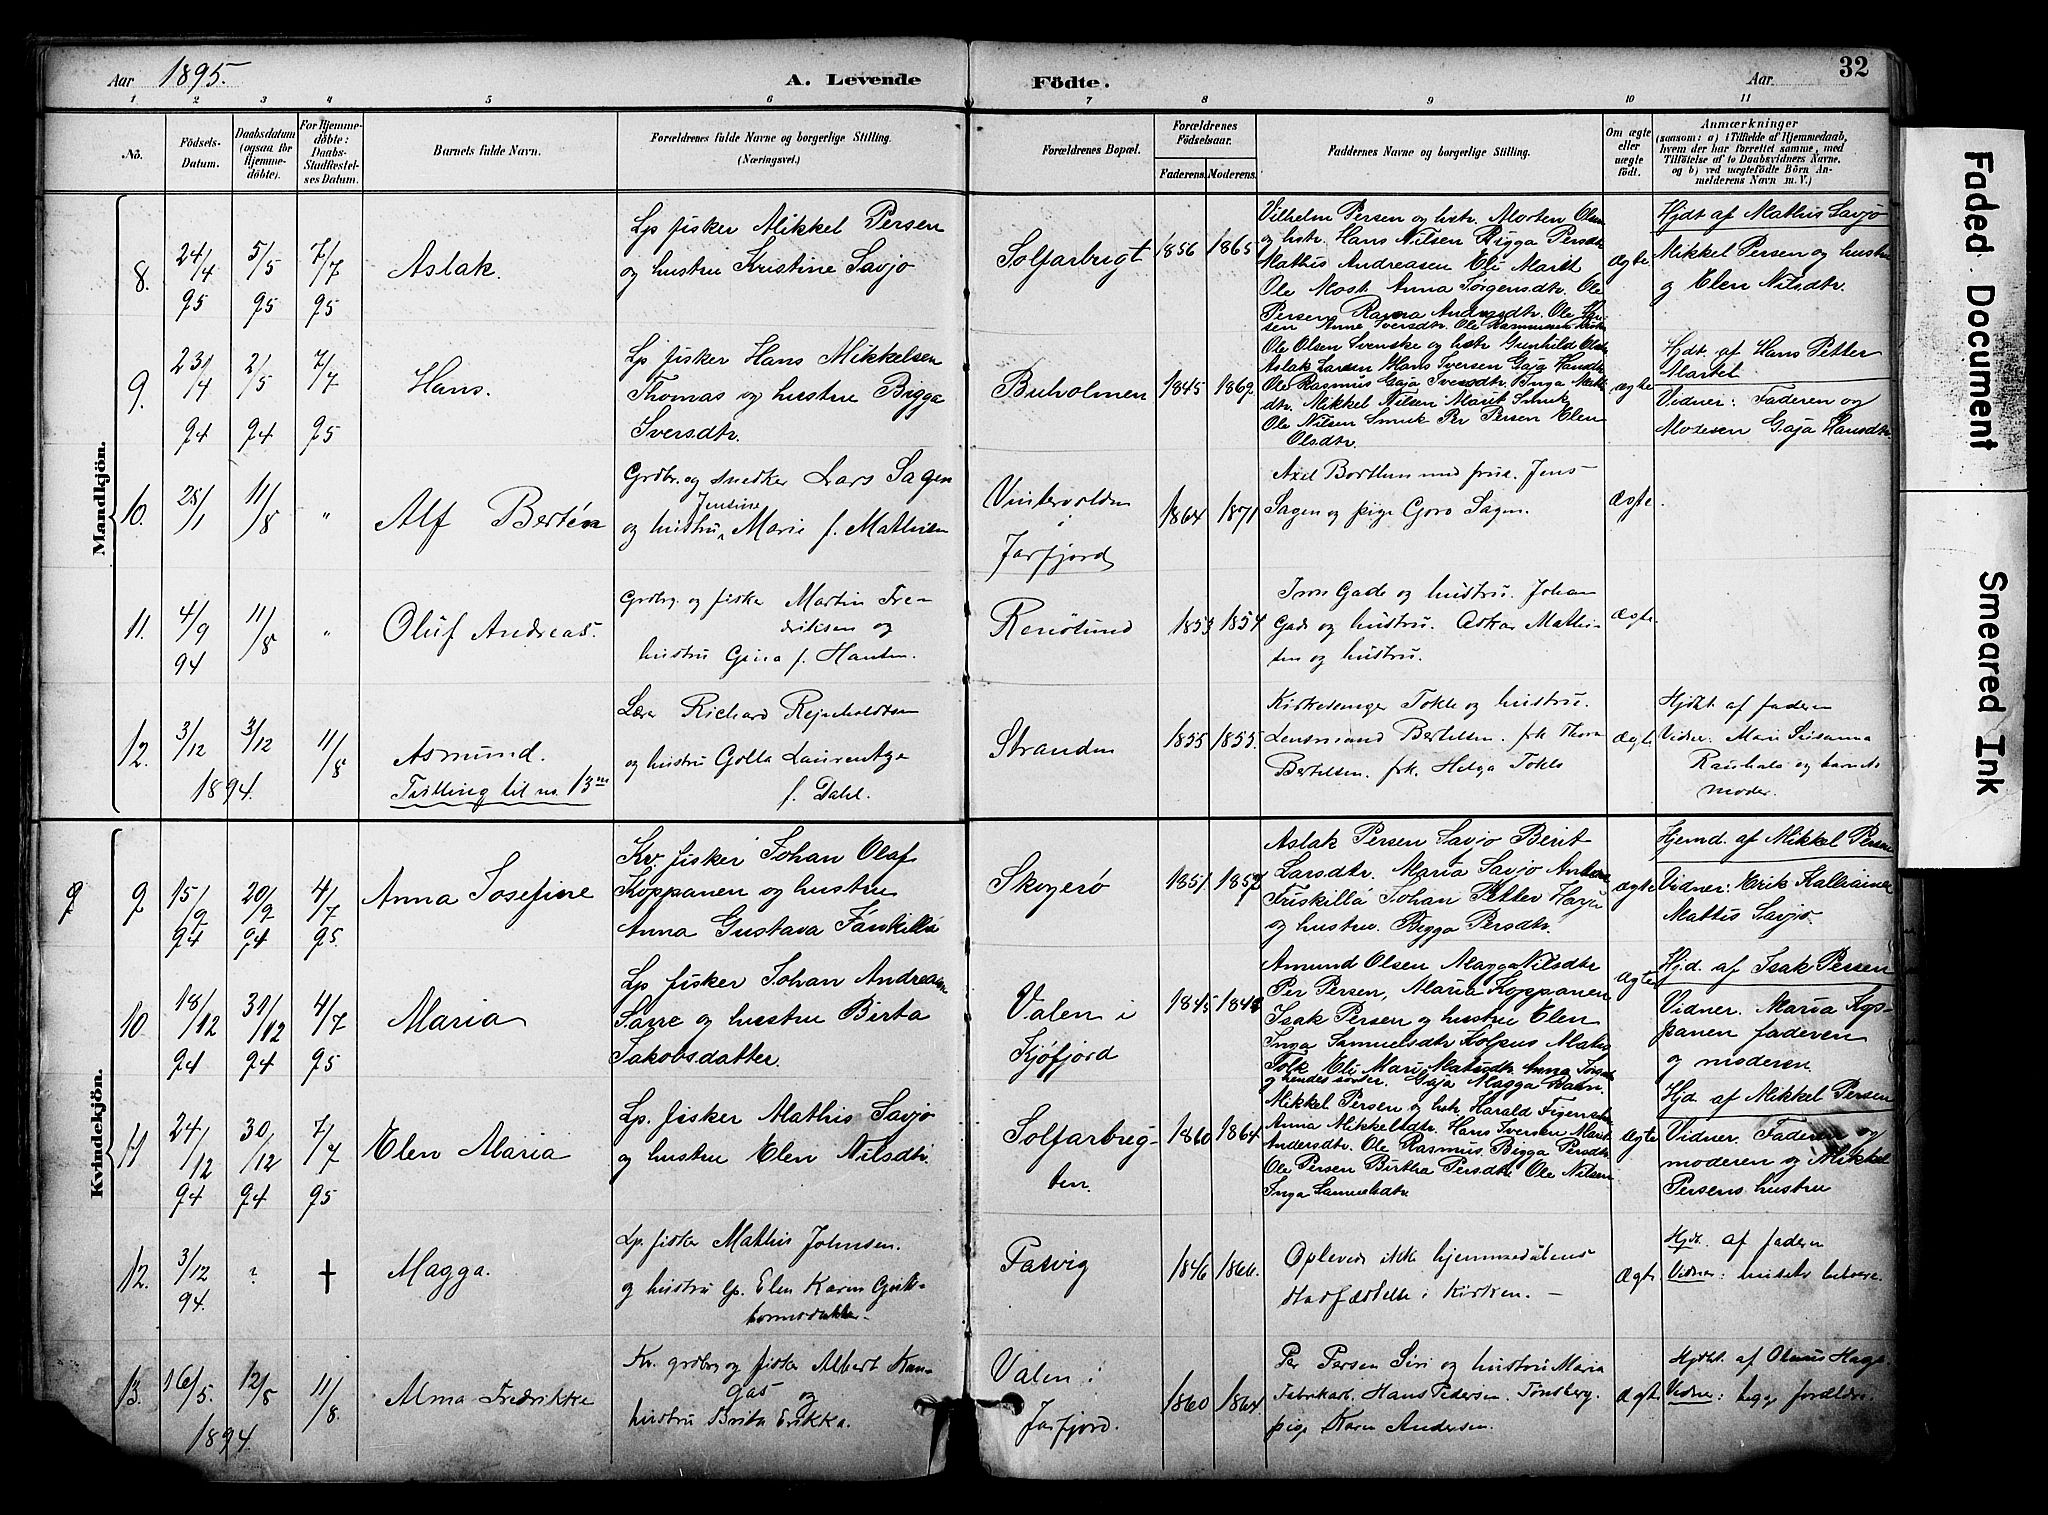 Aar 1895.
A. Levende
Födte.
Aar.
32
1 2 3 4 5 6 7 8 9 10 11
Nô.
Födsels-Datum.
Daabsdatum (ogsaa for Hjemme-döbte).
For Hjemme-döbte: Daabs-Stadfæstel-ses Datum.
Barnets fulde Navn.
Forældrenes fulde Navne og borgerlige Stilling. (Næringsvei.)
Forældrenes Bopæl.
Forældrenes Födselsaar.
Faderens. Moderens.
Faddernes Navne og borgerlige Stilling.
Om ægte eller uægte født.
Anmærkninger
(saasom: a) i Tilfælde af Hjemmedaab,
hvem der har forrettet samme, med
Tilföielse af to Daabsvidners Navne.
og b) ved uægtefödte Börn An-
melderens Navn m. V.)
Mandkjön.
8. 24/4 95 5/5 95 7/7 95
Aslak.
Lp fisker Mikkel Persen
og hustru Kristine Savjo
Solfarbugt
1856 1865
Vilhelm Persen og hstr. Morten Olsen
og hstr. Hans Nilsen Bigga Persdtr
Mathis Andreasen Eli Marit
Ole Most Anna Jörgensdtr. Ole
Persen Ravna Andersdtr. Ole
ægte
Hjdt af Mathis Savjo
Mikkel Persen og hustru
og Elen Nilsdtr.
9. 23/4 94 2/5 94 7/7 95
Hans.
Lp fisker Hans Mikkelsen
Thomas og hustru Bigga
Iversdtr.
Buholmen
1845 1862
Ole Olsen Svenske og hstr Gunhild Olsdtr
Aslak Larsen Hans Iversen Gaja Hansdtr
Ole Rasmus Gaja Iversdtr. Inga
dtr. Mikkel Nilsen Marit Smuk
Ole Nilsen Smuk Per Persen Elen
Olsdtr.
ægte
Hjdt. af Hans Petter
Martet
Vidner: Faderen og
Moderen Gaja Hansdtr.
10. 25/1 11/8 "
Alf Berten
Grdbr. og snedker Lars Sagen
og hustru Jentine Marie f. Mathisen
Vintervolden
i
Jarfjord
1864 1871
Axel Borthen med frue. Jens
Sagen og pige Goro Sagen.
Ægte
11. 4/9 94 11/8 "
Oluf Andreas.
Grdbrg. og fisker Martin Fre-
driksen og
hustru Gina f. Hansen.
Renösund
1853 1854
Iver Gade og hustru. Johan
Gade og hustru. Oskar Mathi-
sen og hustru.
ægte
12. 3/12 3/12 1894. 11/8
Asmund.
Tvilling til no. 13
Lærer Richard Rejnholdtsen
og hustru Golla Laurentze
f. Dahl.
Stranden
1855 1855.
Kirkesanger Tokle og hustru.
Lensmand Bertelsen. frk Thora
Bertelsen. frk. Helga Tokle
ægte
Hjdbt af faderen
Vidner: Mari Susanna
Rauhala og barnets
moder.
Kvindekjön.
9 9 15/9 94 20/9 94 4/7 95.
Anna Josefine
Kv. fisker Johan Olaf
Koppanen og hustru
Anna Gustava
Skogerö
1851 1857
Aslak Persen Savjo Berit
Larsdtr. Maria Savjo
Friskillä Johan Petter
og hustru. Bigga Persdtr.
ægte
Hjemd. af Mikkel Persen
Vidner: Erik Kalliainen
Mattis Savjo.
10. 18/12 94 31/12 94 4/7 95
Maria
Lp fisker Johan Andreasen
Sarre og hustru Birta
Jakobsdatter.
Valen i
Kjöfjord
1845
Amund Olsen Magga Nilsdtr
Per Persen, Maria Koppanen
Isak Persen og hustru Elen
Inga Samuelsdtr
Eli Mari Anna
og hendes söster. Gaja Magga
ægte
Hjd. af Isak Persen
Vidner. Maria Kop-
panen faderen
og moderen.
11 24/12 94 30/12 94 7/7 95
Elen Maria
Lp. fisker Mathis Savjo
og hustru Elen Nilsdtr.
Solfarbug-
ten.
1860 1864
Mikkel Persen og hstr Harald
Anna Mikkelsdtr. Hans Iversen Marit
Andersdtr. Ole Rasmus Bigga Persdtr
Ole Persen Birtha Persdtr. Ole Nilsen
Inga Samuelsdtr
Ægte
Hjd af Mikkel Persen
Vidner. Faderen og
moderen og Mikkel
Persens hustru
12. 3/12 94. ? †
Magga.
Lp. fisker Mathis Johnsen.
og hustru lp. Elen Karin
Pasvig
1846 1866.
Oplevede ikke hjemmedaabens
stadfæstelse i Kirken. –
Ægte
Hjdt. af faderen
Vidner:
13. 16/5 12/8 1894. 11/8.
Alma Fredrikke
Kv. grdbrg og fisker Albert Kan-
gas og
hustru Brita Erikka.
Valen i
Jarfjord.
1860 1864
Per Persen Siri og hustru Maria
Fabrikarb. Hans Pedersen. Tönsberg.
pige Karen Andersen.
Ægte
Hjdbt. af
Vidner: begge forældre.
Faded Document
Smeared Ink